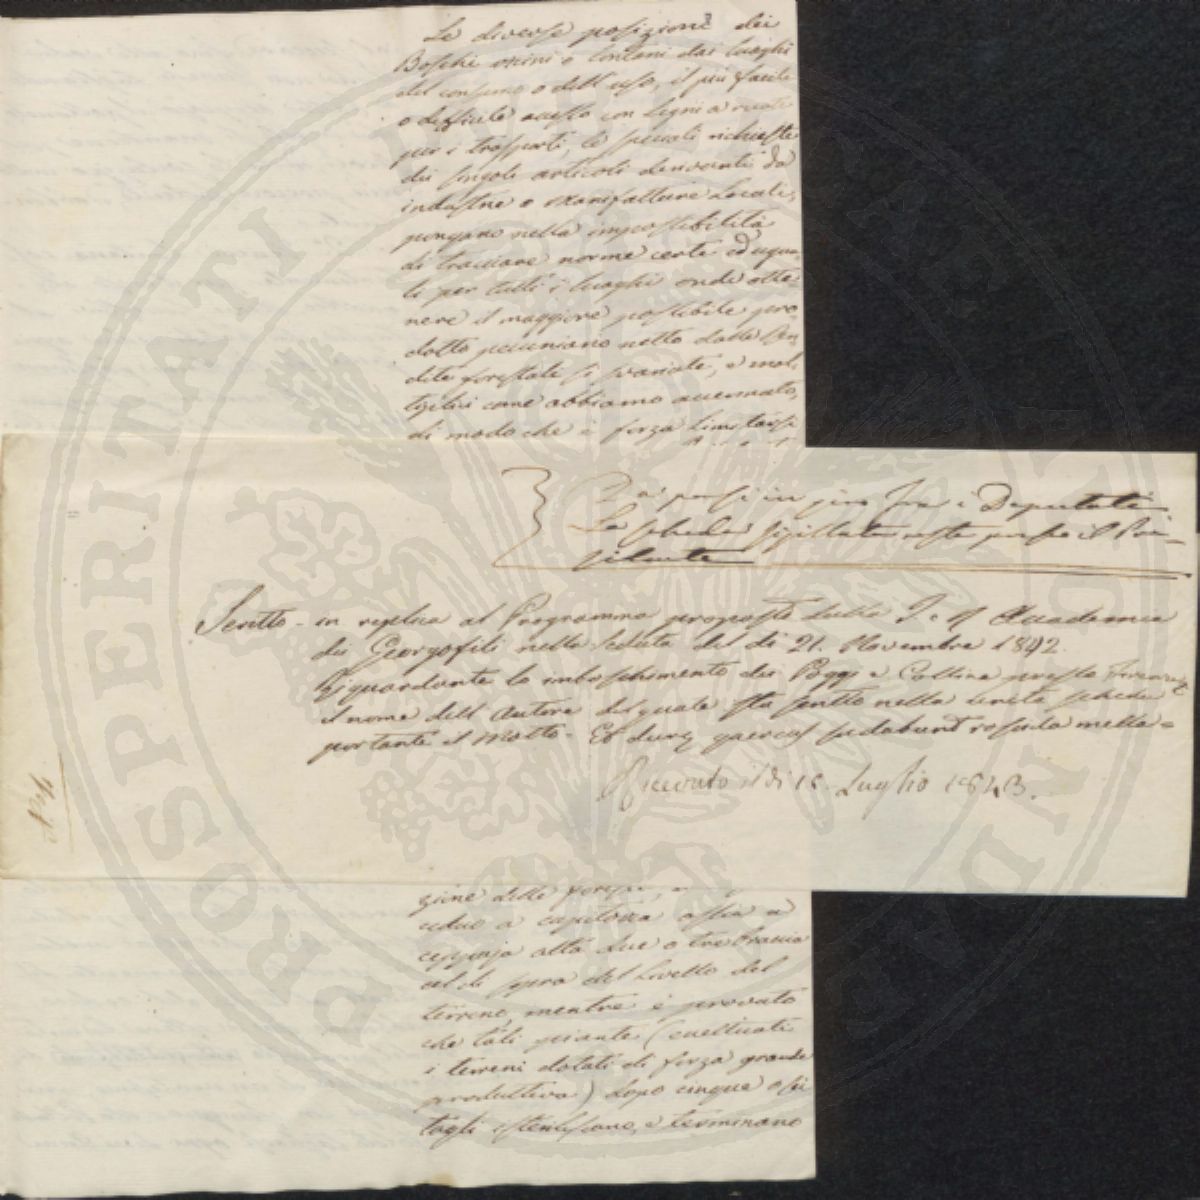 Le diverse posizioni dei
Boschi vicini o lontani dai luoghi
del consumo o dell'uso, il più facile
o difficile accesso con legni a ruote
per i trasporti, le speciali richieste
dei singoli articoli derivanti da
industrie o manifatture locali,
pongano nella impossibilità
di tracciare norme certe ed ugua-
li per tutti i luoghi onde otte-
nere il maggiore possibile pro-
dotto pecuniario netto dalle Ren
dite forestali si svariate, e mol-
tiplici come abbiamo accennato,
di modo che è forza limitarsi
passi in giro fra i Deputati
La scheda sigillata resta presso il
Scritto in replica al Programma proposto dalla I. e R. Accademia
dei Georgofili nella seduta del dì 21. Novembre 1842.
Riguardante lo imboschimento dei Poggi e Colline presso Firenze
il nome dell'Autore del quale sta scritto nella unita scheda
portante il Motto. Et durę quercus sudabunt roscida mella =
Ricevuto il dì 18. Luglio 1843.
N. 4.
zione delle
ceduo a capitozza ossia a
ceppaja alta due o tre braccia
al di sopra del livello del
terreno, mentre è provato
che tali piante (eccettuati
i terreni dotati di forza grande
produttiva) dopo cinque o sei
tagli isteriliscano, e terminano
PROSPERITATI PUBLICAE AUGENDAE